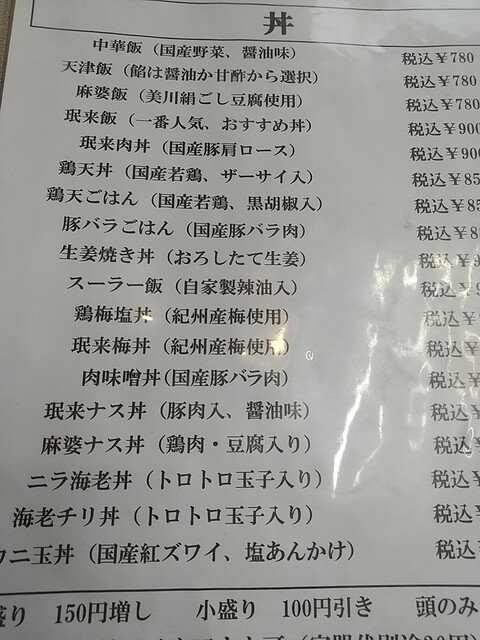 丼
中華飯（国産野菜、醤油味） 税込￥780
天津飯（餡は醤油か甘酢から選択） 税込￥780
麻婆飯（美川絹ごし豆腐使用） 税込￥780
珉来飯（一番人気、おすすめ丼） 税込￥900
珉来肉丼（国産豚肩ロース） 税込￥900
鶏天丼（国産若鶏、ザーサイ入） 税込￥85
鶏天ごはん（国産若鶏、黒胡椒入） 税込￥85
豚バラごはん（国産豚バラ肉） 税込￥8
生姜焼き丼（おろしたて生姜） 税込￥
スーラー飯（自家製辣油入） 税込￥
鶏梅塩丼（紀州産梅使用） 税込￥
珉来梅丼（紀州産梅使用） 税込￥
肉味噌丼(国産豚バラ肉) 税込￥
珉来ナス丼（豚肉入、醤油味） 税込￥
麻婆ナス丼（鶏肉・豆腐入り） 税込￥
ニラ海老丼（トロトロ玉子入り） 税込￥
海老チリ丼（トロトロ玉子入り） 税込
ニ玉丼（国産紅ズワイ、塩あんかけ） 税込
盛り 150円増し 小盛り 100円引き 頭のみ